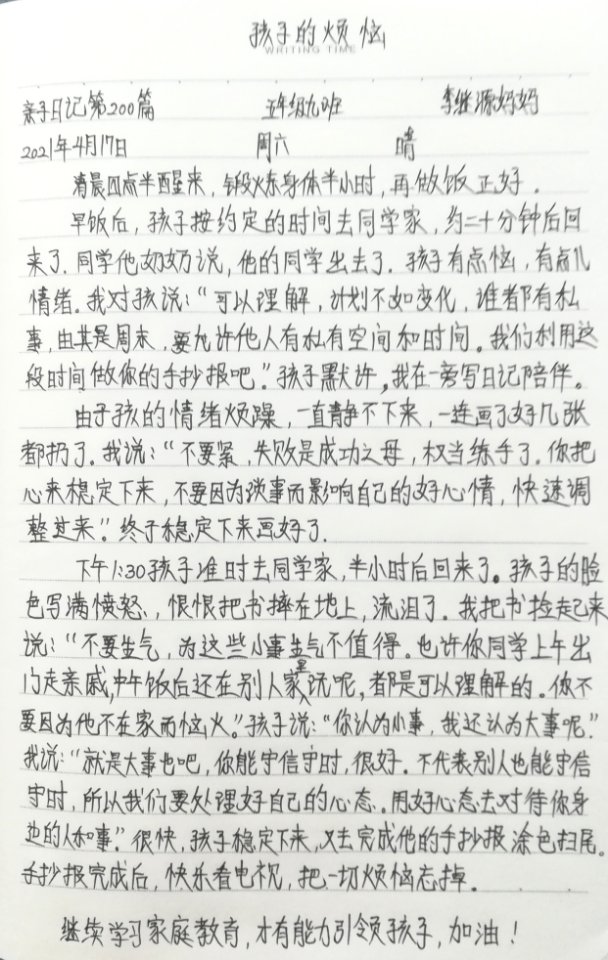 孩子的烦恼
WRITING TIME
亲子日记第200篇 五年级九班 李继源妈妈
2021年4月17日 周六 晴
清晨四点半醒来,锻炼身体半小时,再做饭正好.
早饭后,孩子按约定的时间去同学家,约二十分钟后回
来了.同学他奶奶说,他的同学出去了.孩子有点恼,有点儿
情绪.我对孩说:“可以理解,计划不如变化,谁都有私
事,由其是周末,要允许他人有私有空间和时间。我们利用这
段时间做你的手抄报吧.”孩子默许,我在一旁写日记陪伴。
由于孩的情绪烦躁,一直静不下来,一连画了好几张
都扔了.我说:“不要紧,失败是成功之母,权当练手了.你把
心来稳定下来,不要因为琐事而影响自己的好心情,快速调
整过来”.终于稳定下来画好了.
下午1:30孩子准时去同学家,半小时后回来了。孩子的脸
色写满愤怒,恨恨把书摔在地上,流泪了.我把书捡起来
说:“不要生气,为这些小事生气不值得.也许你同学上午出
门走亲戚,中午饭后还在别人家里玩呢,都是可以理解的.你不
要因为他不在家而恼火。”孩子说:“你认为小事,我还认为大事呢.”
我说:“就是大事也吧,你能守信守时,很好.不代表别人也能守信
守时,所以我们要处理好自己的心态.用好心态去对待你身
边的人和事.”很快,孩子稳定下来,又去完成他的手抄报涂色扫尾。
手抄报完成后,快乐看电视,把一切烦恼忘掉.
继续学习家庭教育,才有能力引领孩子,加油!